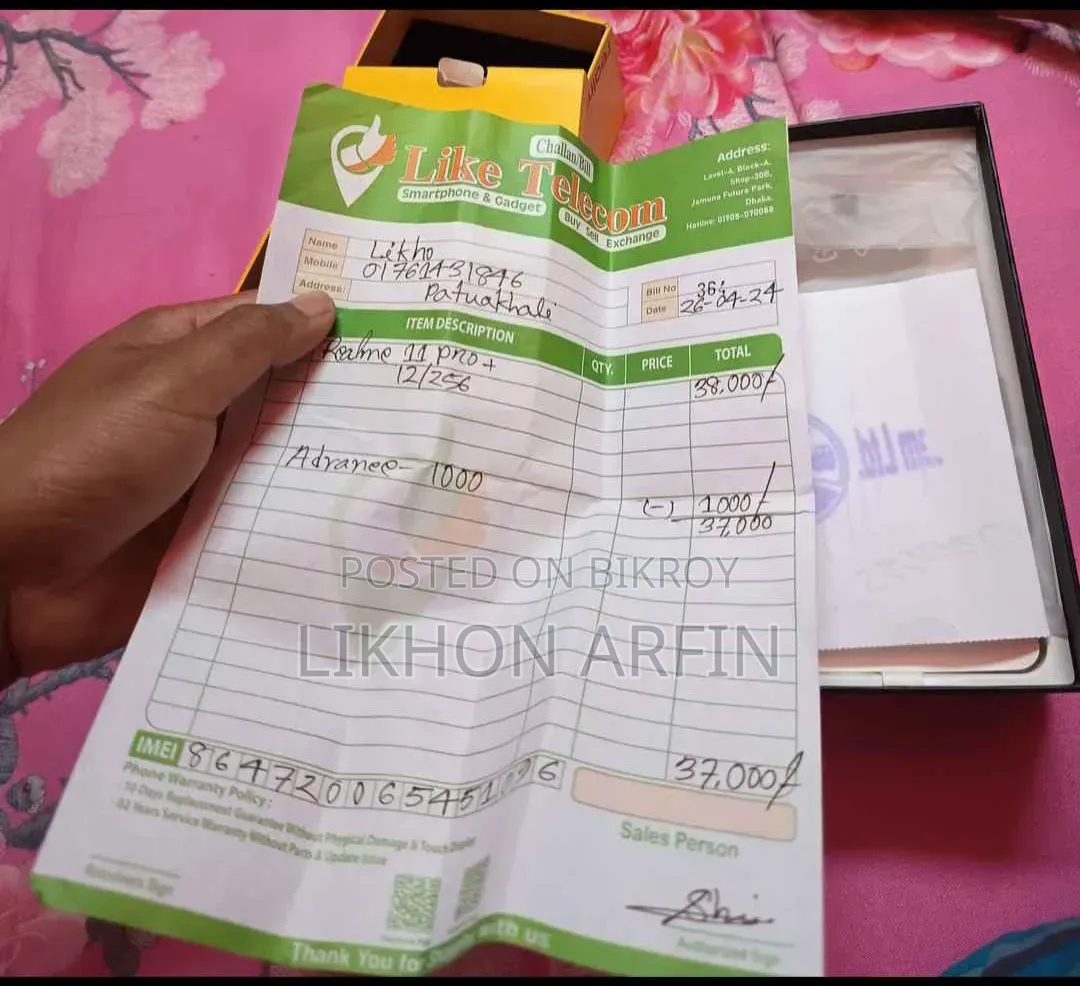 Challan/Bill
Like Telecom
Smartphone & Gadget
Buy Sell Exchange
Address:
Level-4, Block-A,
Shop-30B,
Jamuna Future Park,
Dhaka.
Hotline: 01908-070088
Name Likho
Mobile 01761431846
Address: Patuakhali
Bill No
Date 26-04-24
ITEM DESCRIPTION QTY. PRICE TOTAL
Realme 11 pro+ 38,000/
12/256
Advance- 1000
(-) 1000/-
37,000
POSTED ON BIKROY
LIKHON ARFIN
IMEI 37,000/
Phone Warranty Policy:
10 Days Replacement Guarantee Without Physical Damage & Touch Display
02 Years Service Warranty Without Parts & Update Issue
Sales Person
Authorized Sign
Thank You for with us